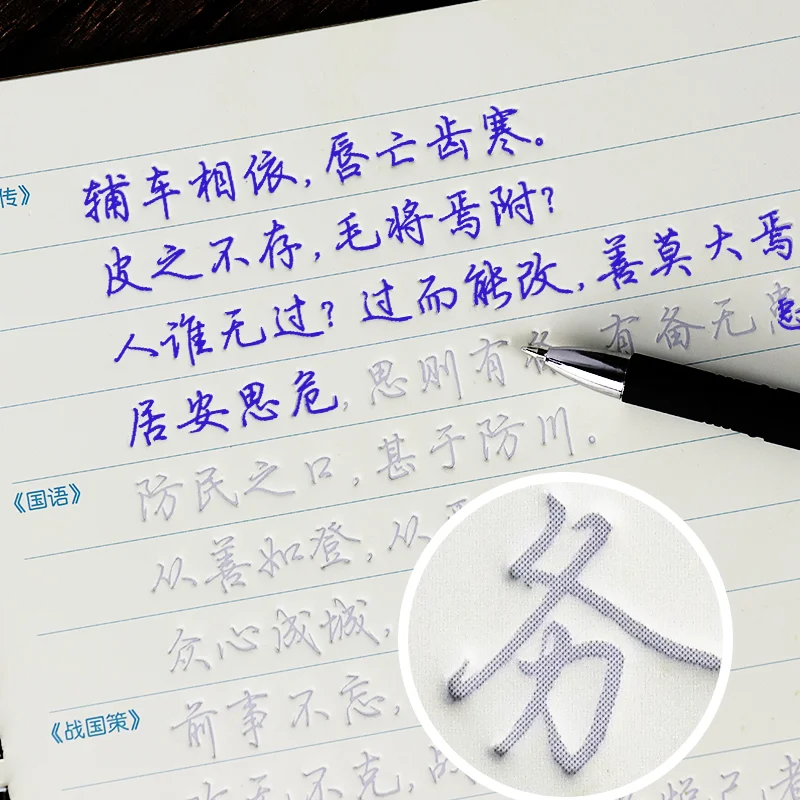 传》 辅车相依,唇亡齿寒。
皮之不存,毛将焉附?
人谁无过?过而能改,善莫大焉
居安思危,思则有备 有备无患
《国语》 防民之口,甚于防川。
从善如登,从
众心成城,
《战国策》 前事不忘,
不克,
务